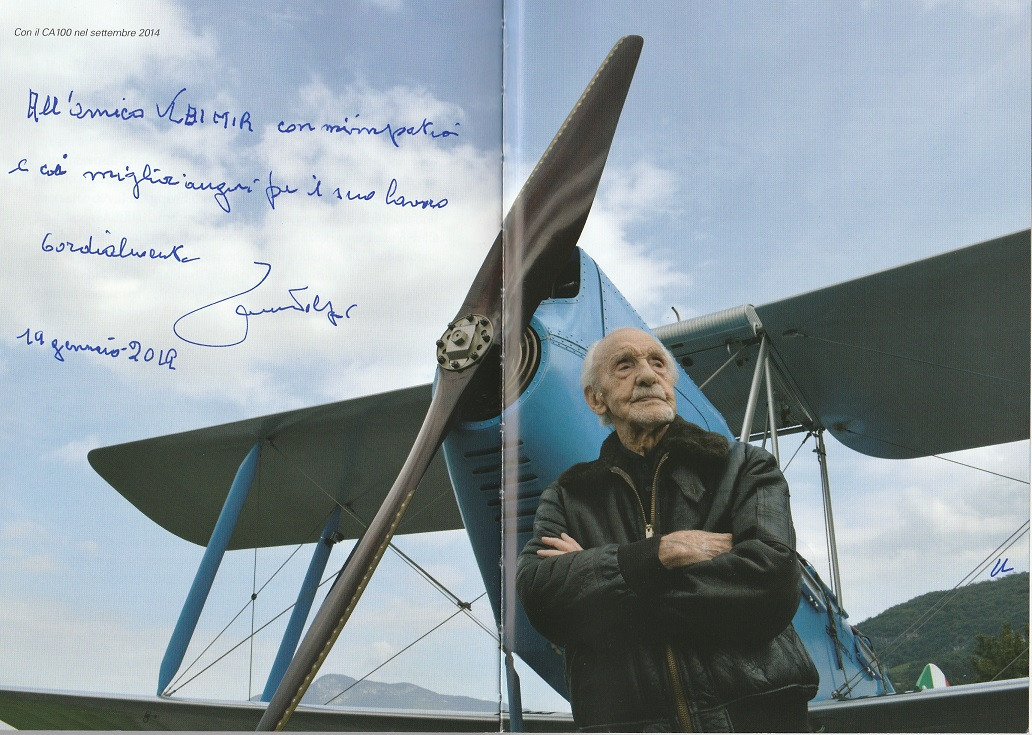 Con il CA100 nel settembre 2014
All'amico VLADIMIR con simpatia
e coi migliori auguri per il suo lavoro
Cordialmente
19 gennaio 2019